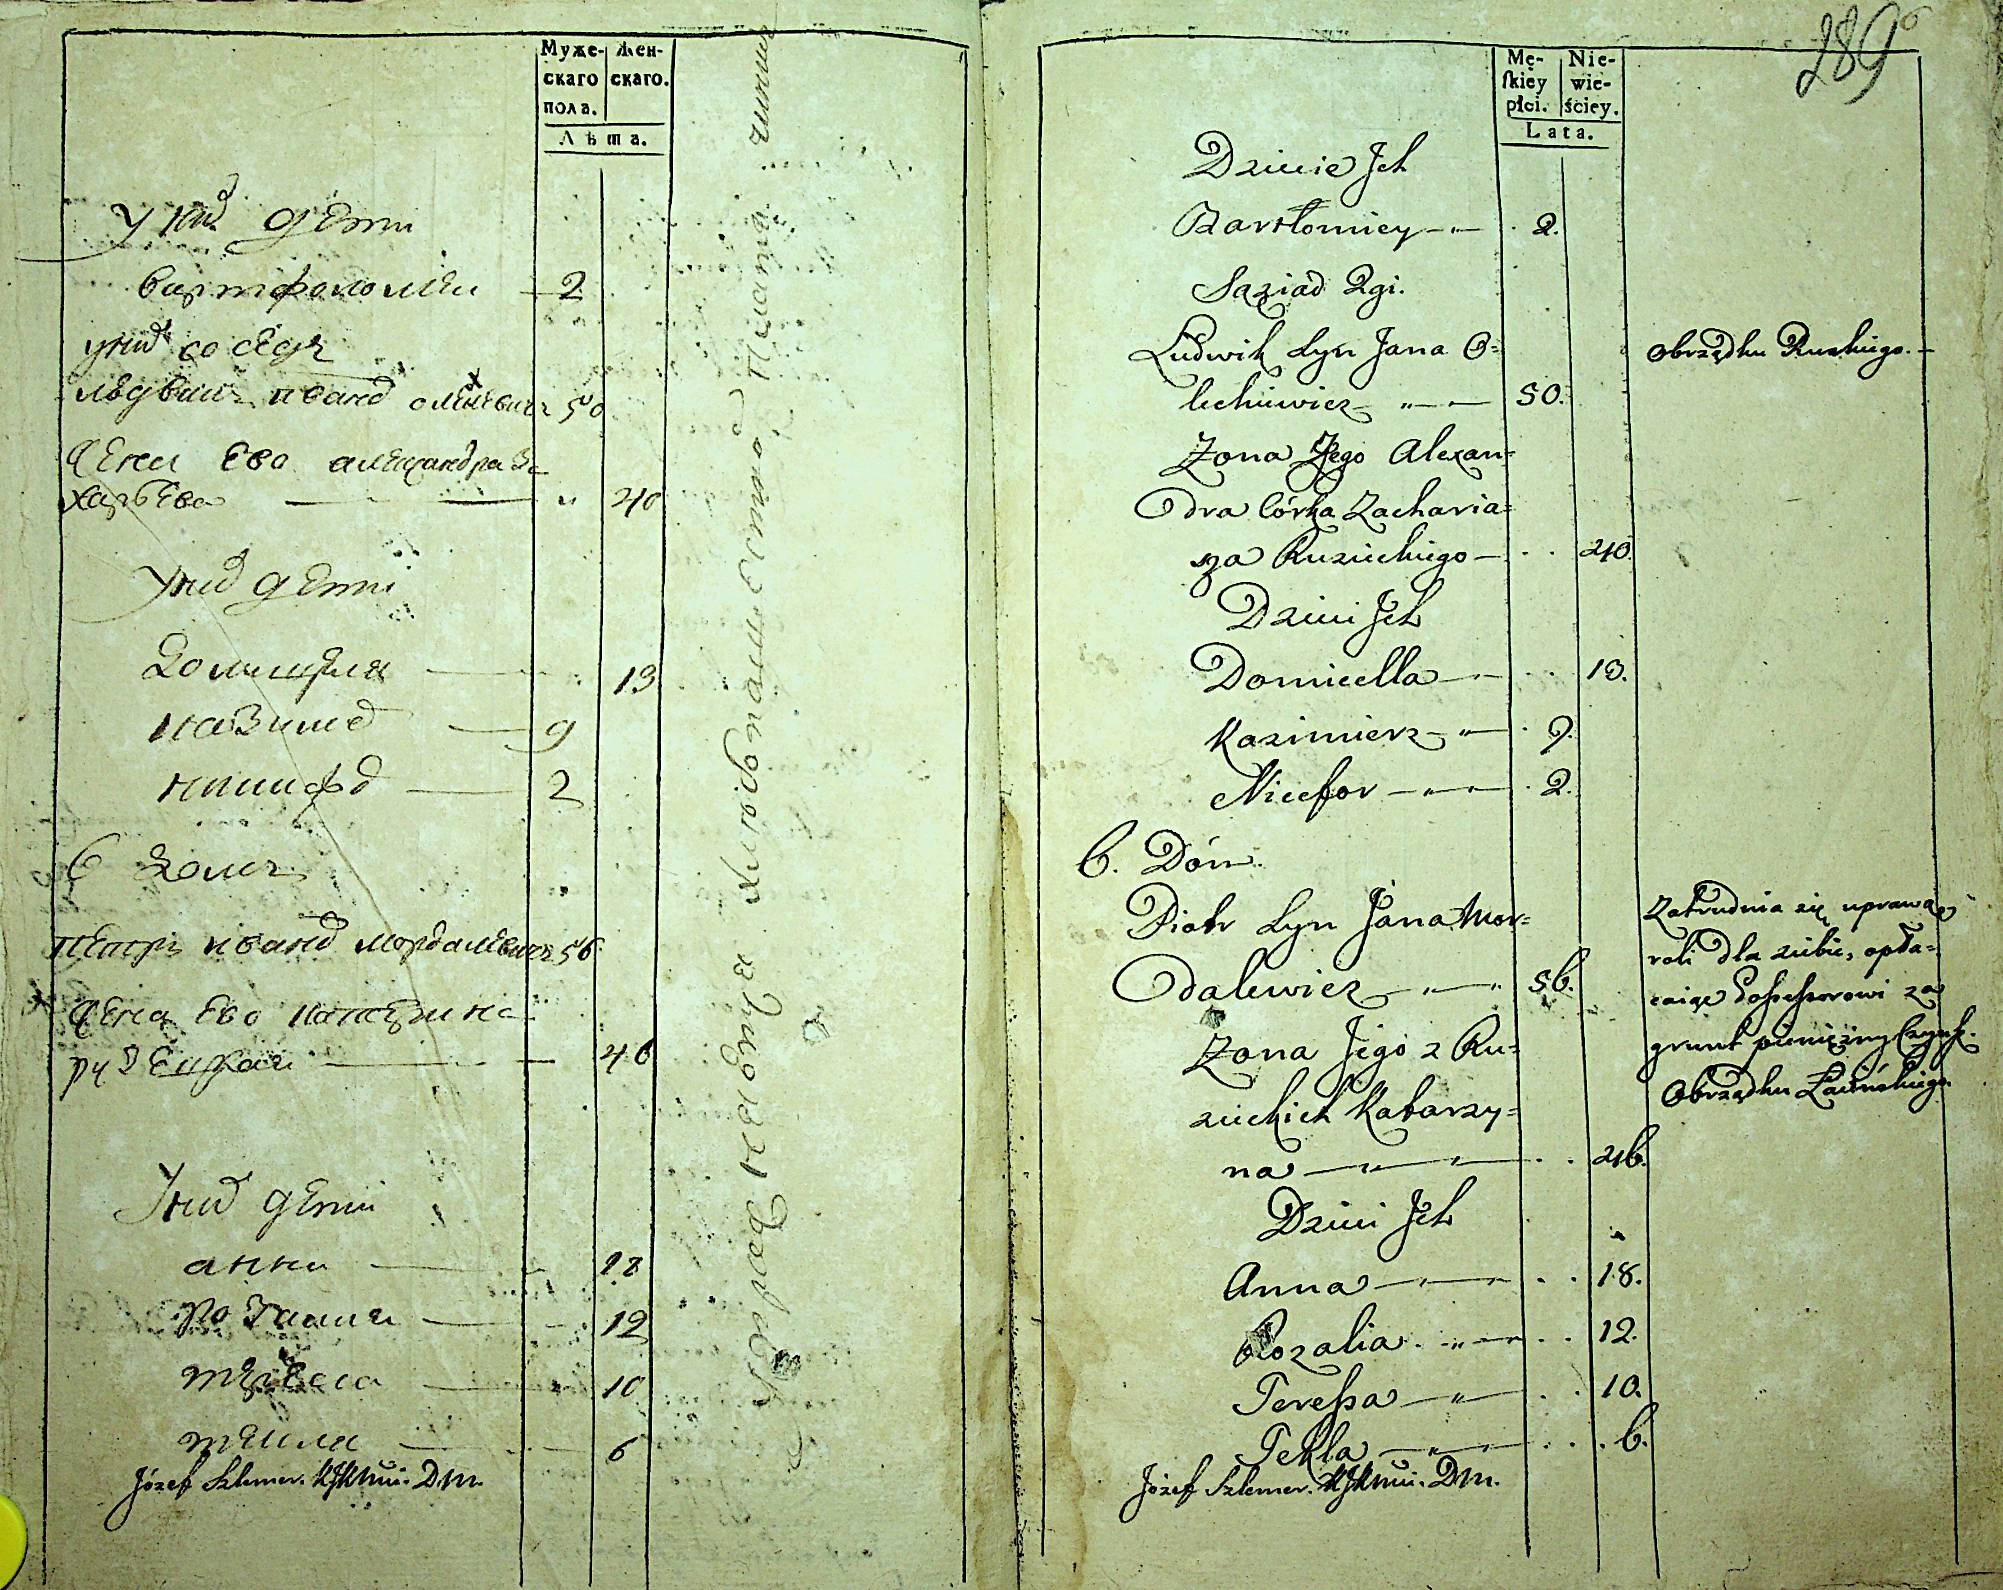 Муже- Жен-
скаго скаго.
пола.
Лѣта.
у нид дети
вартфоломеи 2
унид соседъ
людвикъ иванд олехневичъ 50
жена ево александра За
харьева " 40
унид дети
Домицеля 13
казимед 9
6 Домъ
петръ иванд мордалевичъ 56
жена ево катарина
46
унид дети
анна 18
розалия 12
тереса 10
текля 6
Józef Szlemer. D.m.
289
Mę- Nie-
skiey wie-
płci. ściey.
Lata.
Dziecie Jch
Bartłomiey 2.
Sąsiad 2gi.
Ludwik Syn Jana O=
lechiewicz 50.
Zona Jego Alexan=
dra Córka Zacharia=
sza Ruzieckiego 40.
Dzieci Jch
Domicella 13.
Kazimierz 9.
Nicefor 2.
6. Dóm.
Piotr Syn Jana Mor=
dalewicz 56.
Zona Jego z Ru=
zieckich Katarzy=
na 46.
Dzieci Jch
Anna 18.
Rozalia 12.
Teressa 10.
Tekla 6.
Józef Szlemer. D.m.
Obrządku Ruskiego.
Zatrudnia się uprawą
roli dla siebie, opła=
caiąc Possessorowi za
grunt pieniężny Czynsz.
Obrządku Łacińskiego